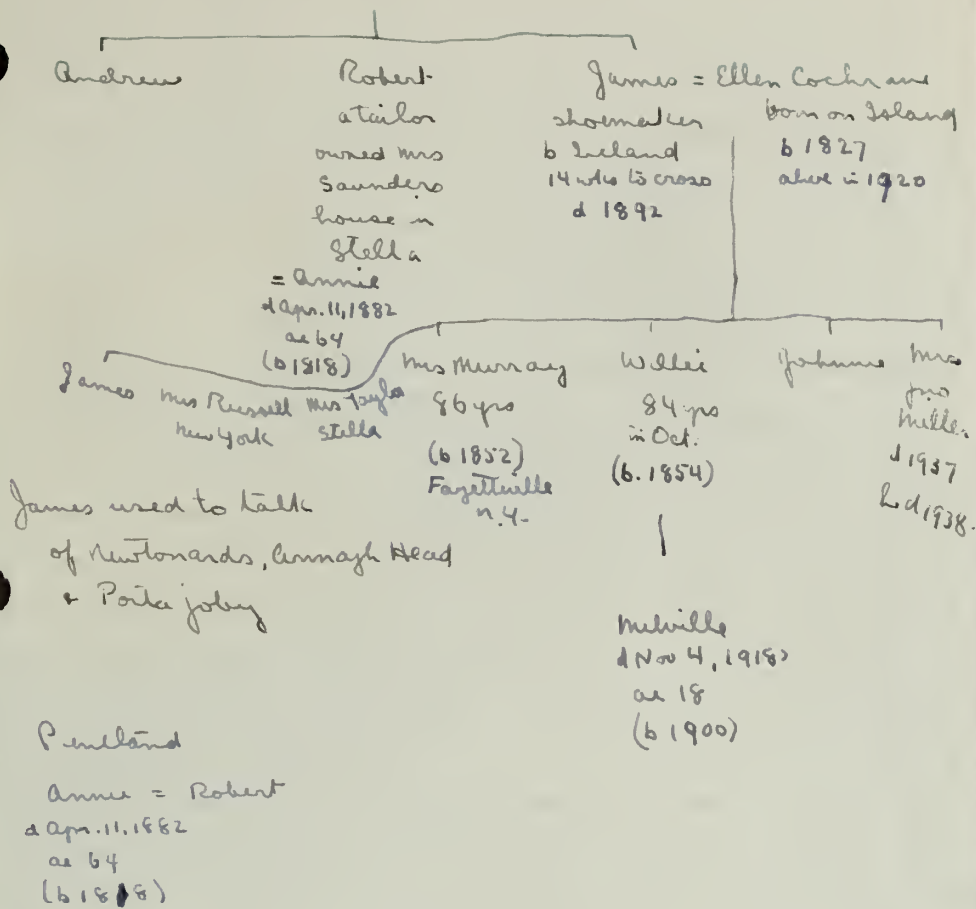 Andrew
Robert
a tailor
owned Mrs
Saunders
house in
Stella
= Annie
d Apr. 11, 1882
ae 64
(b 1818)
James = Ellen Cochrane
shoemaker
b Ireland
14 wks to cross
d 1892
born on Island
b 1827
alive in 1920
James
Mrs Russell
New York
Mrs Taylor
Stella
Mrs Murray
86 yrs
(b 1852)
Fayetteville
N.Y.
Willie
84 yrs
in Oct.
(b. 1854)
Johnnie
Mrs
Jno
Miller
d 1937
h d 1938.
James used to talk
of Newtonards, Annagh Head
&
Melville
d Nov 4, 1918
ae 18
(b 1900)
Pentland
Annie = Robert
d Apr. 11, 1882
ae 64
(b 1818)